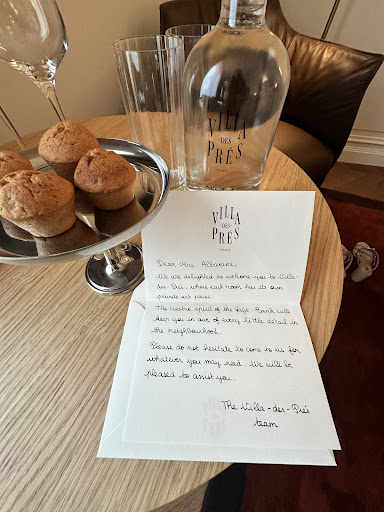 VILLA
-DES-
PRÉS
VILLA
-DES-
PRÉS
PARIS
Dear Mrs. Albarami,
We are delighted to welcome you to Villa-
des-Prés, where each room has its own
private art piece.
The creative spirit of the Left-Bank will
keep you in awe of every little detail in
the neighbourhood.
Please do not hesitate to come to us for
whatever you may need. We will be
pleased to assist you.
The Villa-des-Prés
team